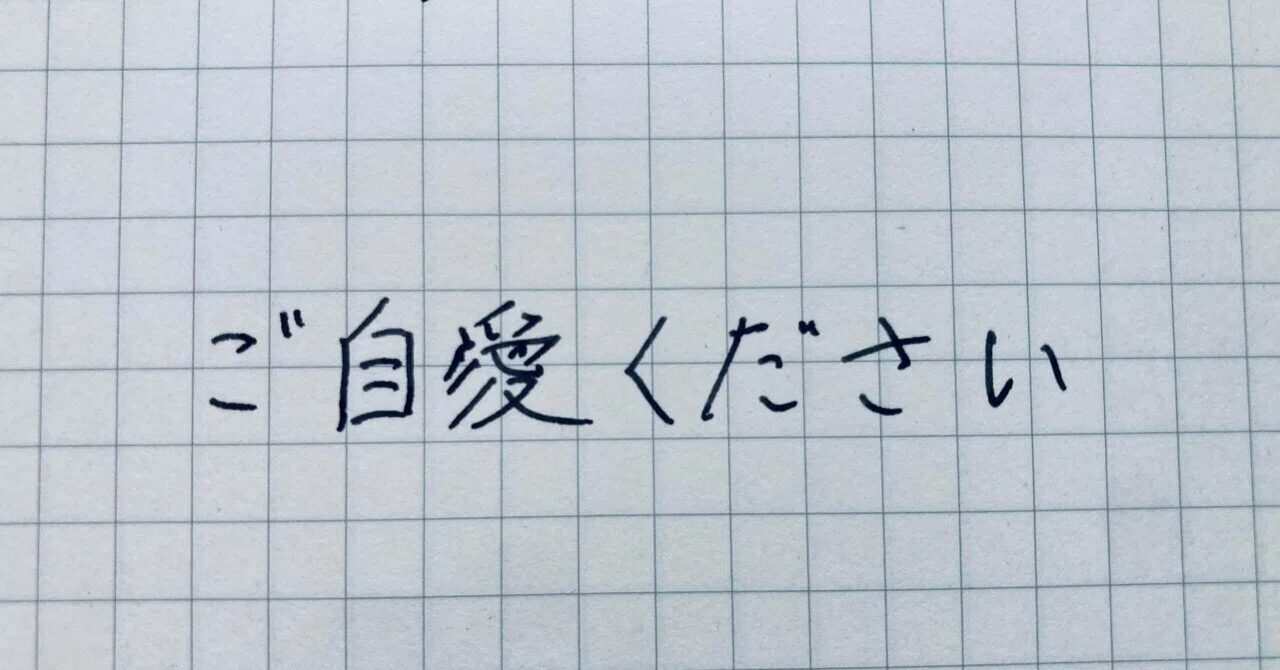 ご自愛ください